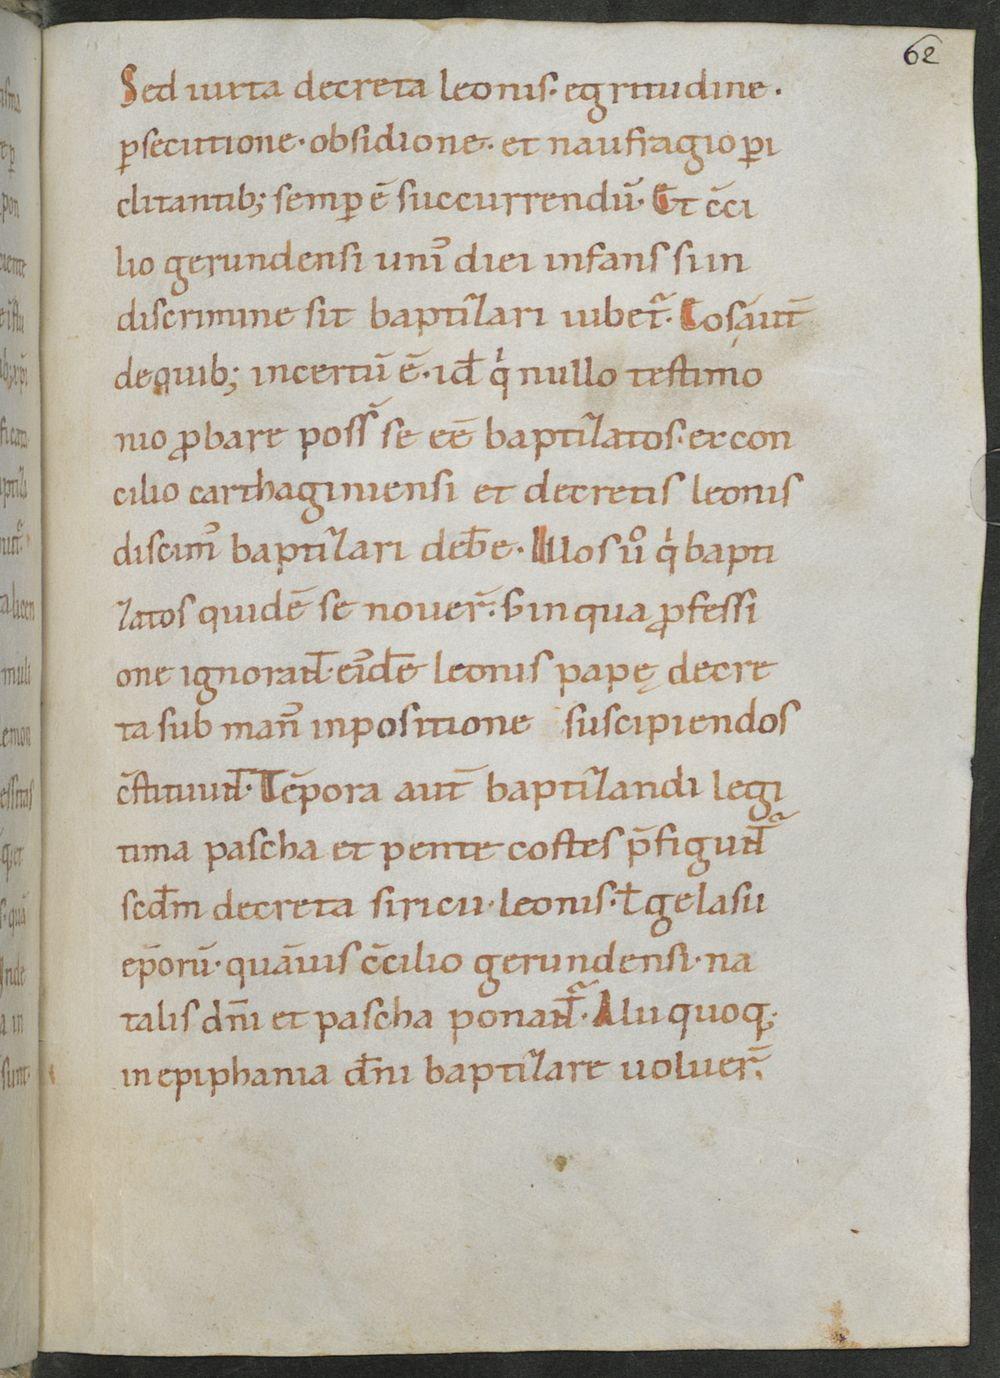 62
Sed iuxta decreta leonis· egritudine·
ꝑsecutione· obsidione· et naufragio ꝑi
clitantib; semꝑ ē succurrendū· Et c̄ci
lio gerundensi uni᷒ diei infans si in
discrimine sit baptizari iubet᷑· Eos aut̄
de quib; incertū ē· id ̄ qͥ nullo testimo
nio ꝓbare poss̄ se eē baptizatos· ex con
cilio carthaginiensi et decretis leonis
discim᷒ baptizari deb̄e· Illos ūo qͥ bapti
zatos quidē se nouer̄· s; in qua ꝓfessi
one ignorant̄· eide̅ leonis papę decre
ta sub man᷒ inpositione suscipiendos
c̄stituunt̄· Tēpora aut̄ baptizandi legi
tima pascha et pentecostes p̄figunt᷑
scd̄m decreta siricii· leonis· ł gelasii
ep̄orū· quāuis c̄cilio gerundensi· na
talis dn̄i et pascha ponant᷑· Alii quoq;
in epiphania dn̄i baptizare uoluer̄·